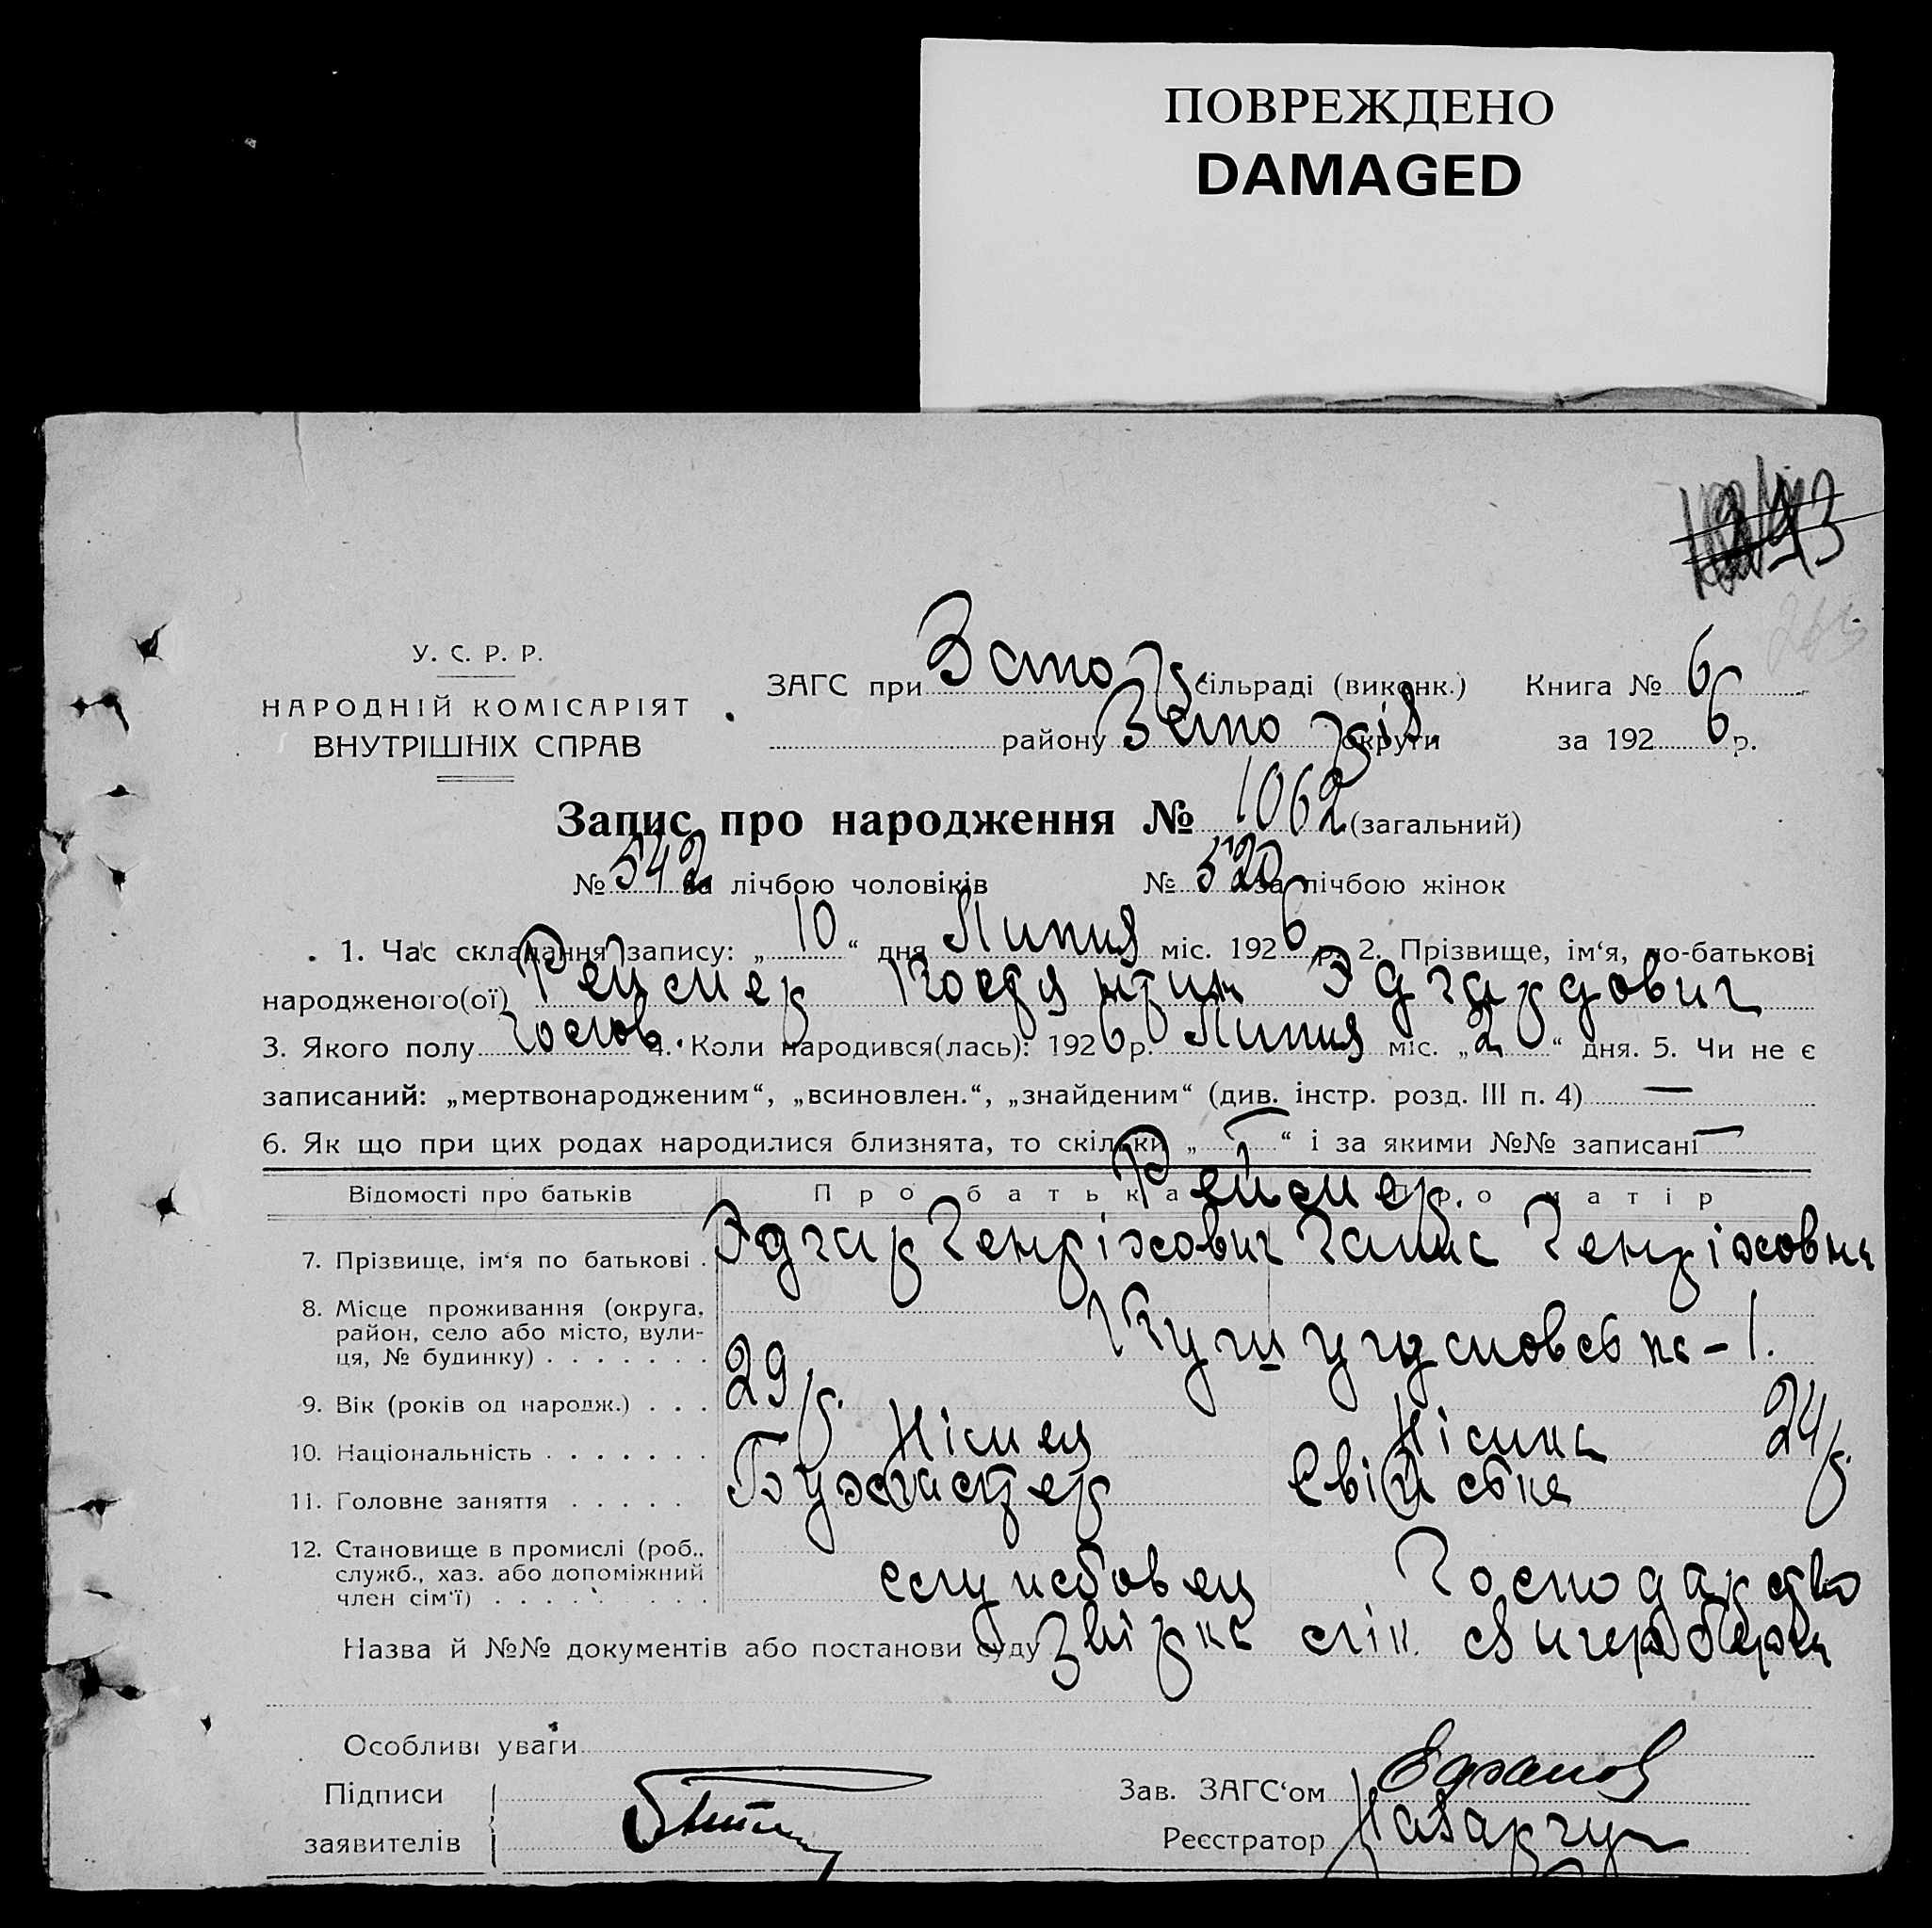 ПОВРЕЖДЕНО
DAMAGED
У. С. Р. Р.
НАРОДНІЙ КОМІСАРІЯТ
ВНУТРІШНІХ СПРАВ
ЗАГС при сільраді (виконк.) Книга № 6
району округи за 1926 р.
Запис про народження № 1062 (загальний)
№ 542 за лічбою чоловіків № 520 за лічбою жінок
1. Час складання запису: „10“ дня Липня міс. 1926 р. 2. Прізвище, ім‘я, по-батькові
народженого(ої) Реймер Эдгардович
3. Якого полу 4. Коли народився(лась): 1926 р. Липня міс. „2“ дня. 5. Чи не є
записаний: „мертвонародженим“, „всиновлен.“, „знайденим“ (див. інстр. розд. III п. 4) —
6. Як що при цих родах народилися близнята, то скільки „—“ і за якими №№ записані —
Реймер.
Відомості про батьків Про батька Про матір
7. Прізвище, ім‘я по батькові . Эдгар Генріхович Генріховна
8. Місце проживання (округа,
район, село або місто, вули-
ця, № будинку) . . . . . . . Кушугумовська - 1.
9. Вік (років од народж.) . . . 29 р. 24 р.
10. Національність . . . . . . . Німец Німка
11. Головне заняття . . . . . Бухгалтер Свійське
12. Становище в промислі (роб.,
служб., хаз. або допоміжний
член сім‘ї) . . . . . . . . . службовец Господарство
Назва й №№ документів або постанови суду
Особливі уваги
Підписи
заявителів
Зав. ЗАГС‘ом
Реєстратор Назарчук